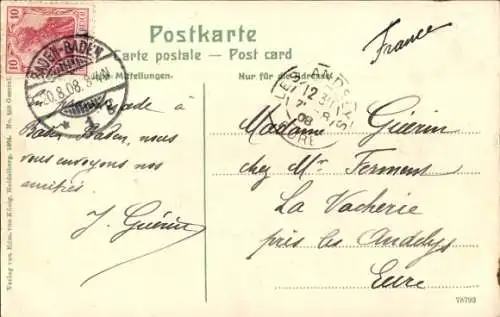 Postkarte
Carte postale — Post card
France
Mitteilungen.
Nur für die Adresse
10 10
BADEN-BADEN
20.8.08. 8-9N
* 1 g
LES ANDELYS
EURE
08
à
Baden Baden, nous
vous envoyons nos
amitiés
J. Guérin
Madame Guérin
chez Mr Ferment
La Vacherie
près les Andelys
Eure
Verlag von Edm. von König, Heidelberg, 1904.
78793